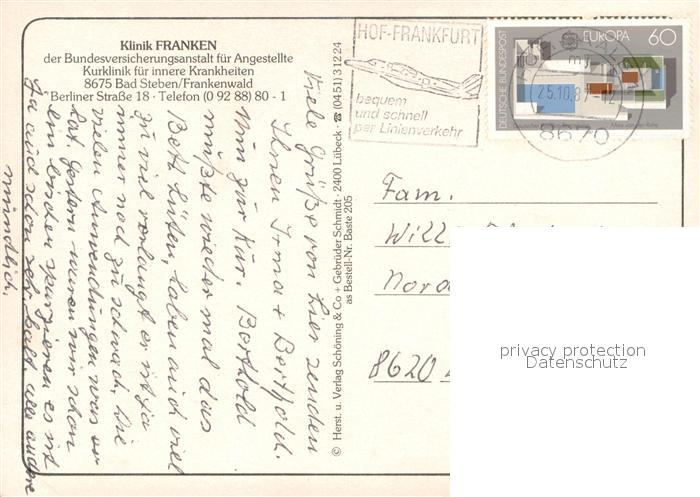 Klinik FRANKEN
der Bundesversicherungsanstalt für Angestellte
Kurklinik für innere Krankheiten
8675 Bad Steben/Frankenwald
Berliner Straße 18 · Telefon (0 92 88) 80 - 1
HOF-FRANKFURT
bequem
und schnell
per Linienverkehr
DEUTSCHE BUNDESPOST
EUROPA
60
25.10.87
8670
Viele Grüße von hier senden
Ihnen Irma + Berthold.
Nun zur Kur. Berthold
mußte wieder mal das
Bett hüten, haben auch viel
zu viel verlangt er ist ja
immer noch zu schwach. Die
vielen Anwendungen was er
hat. Gestern waren wir schon
ein bischen spazieren es ist
ja auch schon sehr kalt. alles andere
mündlich.
© Herst. u. Verlag Schöning & Co + Gebrüder Schmidt · 2400 Lübeck · ☎ (04 51) 3 12 24
as Bestell-Nr. Baste 205
Fam.
Will
Nord
8620
privacy protection
Datenschutz